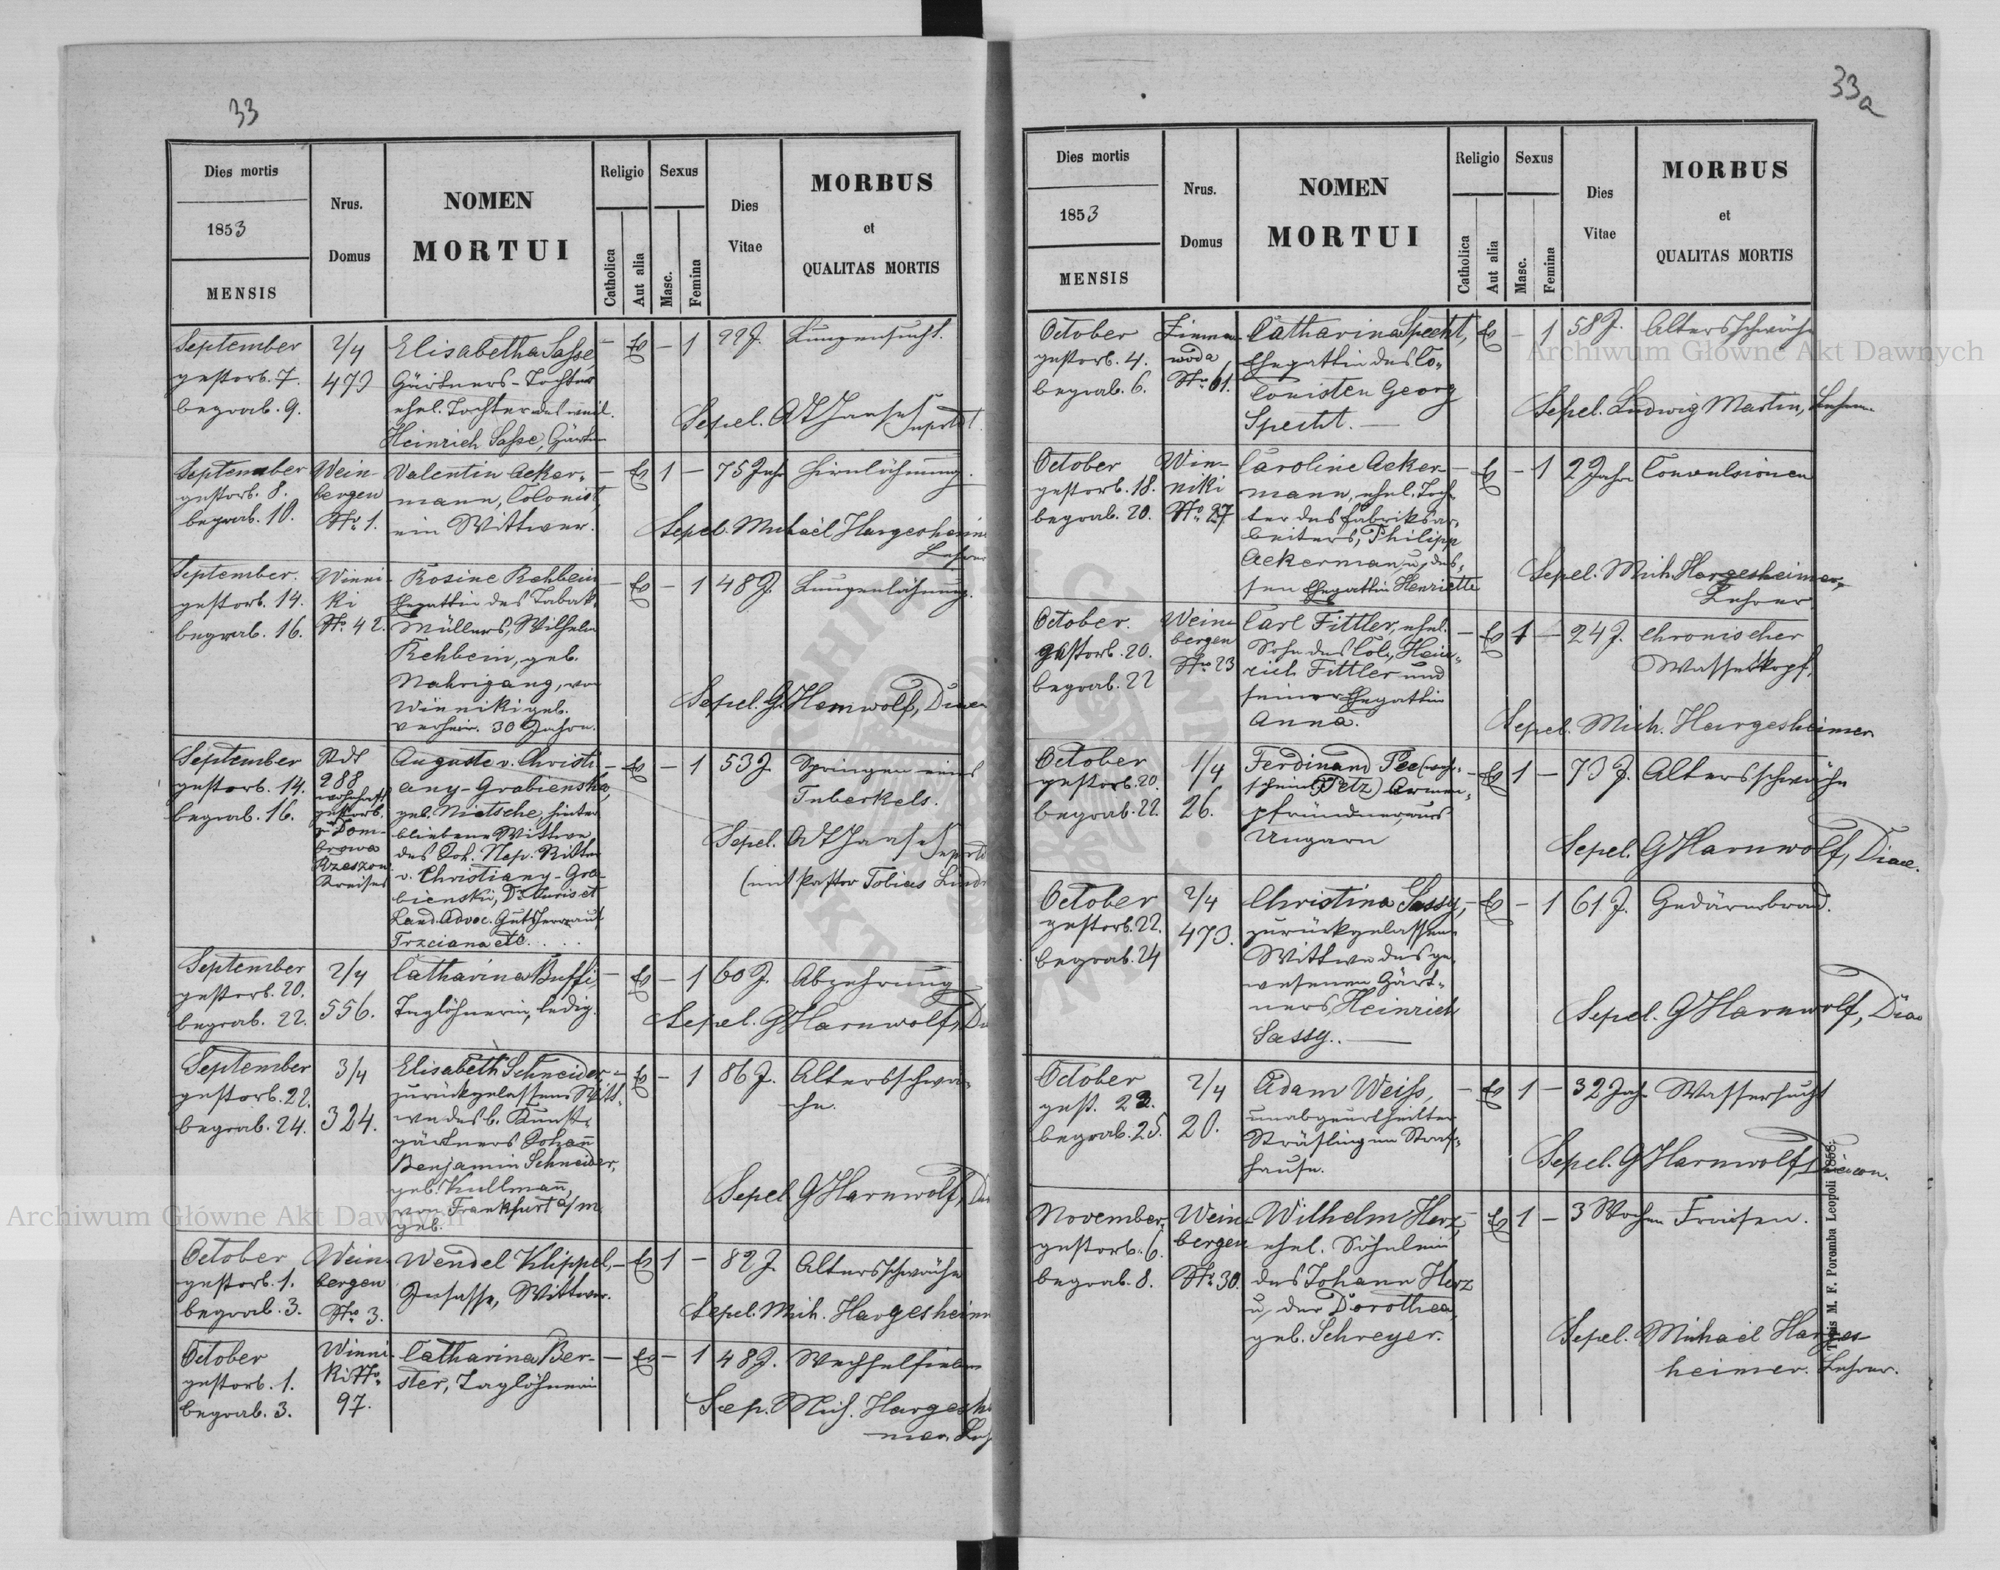 33
Dies mortis
1853
MENSIS
Nrus.
Domus
NOMEN
MORTUI
Religio
Catholica
Aut alia
Sexus
Masc.
Femina
Dies
Vitae
MORBUS
et
QUALITAS MORTIS
September
gestorb. 7.
begrab. 9.
2/4
473
Elisabetha Sasse,
Gärtners-Tochter
ehel. Tochter des weil.
Heinrich Sasse, Gärtner
– Ev – 1
22 J.
Lungensucht.
Sepel. A Th Haase Suprdt.
September
gestorb. 8.
begrab. 10.
Wein-
bergen
Nr. 1.
Valentin Acker-
mann, Colonist,
ein Wittwer.
– Ev 1 –
75 Jahr
Hirnlähmung.
Sepel. Michaël Hargesheime
Lehrer
September.
gestorb. 14.
begrab. 16.
Winni-
ki
Nr. 42.
Rosine Rehbein
Ehegattin des Tabak-
Müllers, Wilhelm
Rehbein, geb.
Nahrigang, von
Winniki geb.
verheir. 30 Jahre.
– Ev – 1
48 J.
Lungenlähmung.
Sepel. G. Harnwolf, Diacon
September
gestorb. 14.
begrab. 16.
Stdt
288
wohnhaft
gestorb.
z. Dom-
browa
Rzeszow
Kreises
Auguste v. Christi-
any-Grabienska,
geb. Nietsche, hinter-
bliebene Wittwe
des Joh. Nep. Ritter
v. Christiany-Gra-
bienski, Dr. Juris et
Land. Advoc. Gutsherr auf
Trzciana etc. . . .
– Ev – 1
53 J.
Springen eines
Tuberkels.
Sepel. A Th Haase Suprdt
(mit Pastor Tobias
September
gestorb. 20.
begrab. 22.
2/4
556.
Catharina Buffi,
Taglöhnerin, ledig.
– Ev – 1
60 J.
Abzehrung
Sepel. G Harnwolf, Di
September
gestorb. 22.
begrab. 24.
3/4
324.
Elisabeth Schneider
zurückgelassene Witt-
we des b. Kunst-
gärtners Johann
Benjamin Schneider,
geb. Kullmann,
von Frankfurt a/m
geb.
– Ev – 1
86 J.
Altersschwä-
che.
Sepel G Harnwolf, Di
October
gestorb. 1.
begrab. 3.
Wein-
bergen
Nr. 3.
Wendel Klippel,
Insasse, Wittwer.
– Ev 1 –
82 J.
Altersschwäche
Sepel. Mich. Hargesheim
October
gestorb. 1.
begrab. 3.
Winni-
ki Nr.
97.
Catharina Ber-
ster, Taglöhnerin
– Ev – 1
48 J.
Wechselfieber
Sep. Mich. Hargeshei
mer. Leh
33a
Dies mortis
1853
MENSIS
Nrus.
Domus
NOMEN
MORTUI
Religio
Catholica
Aut alia
Sexus
Masc.
Femina
Dies
Vitae
MORBUS
et
QUALITAS MORTIS
October
gestorb. 4.
begrab. 6.
Zimna-
woda
Nr. 61.
Catharina Specht,
Ehegattin des Co-
lonisten Georg
Specht.
Ev – 1
58 J.
Altersschwäche
Sepel. Ludwig Martin, Lehrer
October
gestorb. 18.
begrab. 20.
Win-
niki
No. 27
Caroline Acker-
mann, ehel. Toch-
ter des Fabriksar-
beiters, Philipp
Ackermann u. des-
sen Ehegattin Henriette
– Ev – 1
2 Jahre
Convulsionen
Sepel. Mich. Hargesheimer,
Lehrer
October.
gestorb. 20.
begrab. 22
Wein-
bergen
Nr. 23
Carl Fittler, ehel.
Sohn des Col. Hein-
rich Fittler und
seiner Ehegattin
Anna.
– Ev 1 –
24 J.
chronischer
Wasserkopf.
Sepel. Mich. Hargesheimer
October
gestorb. 20.
begrab. 22.
1/4
26.
Ferdinand Pee (wahr-
scheinl. Petz) Armen-
pfründner, aus
Ungarn
– Ev 1 –
73 J.
Altersschwäche
Sepel. G Harnwolf, Diac.
October
gestorb. 22.
begrab. 24
2/4
473.
Christina Sassy,
zurückgelassene
Wittwe des ge-
wesenen Gärt-
ners, Heinrich
Sassy.
– Ev – 1
61 J.
Gedärmbrand.
Sepel. G Harnwolf, Diac
October
gest. 23.
begrab. 25.
2/4
20.
Adam Weiss,
unabgeurtheilter
Sträfling im Straf-
hause.
– Ev 1 –
32 Jahr
Wassersucht
Sepel. G Harnwolf, Diacon.
November,
gestorb. 6.
begrab. 8.
Wein-
bergen
Nr. 30.
Wilhelm Herz,
ehel. Söhnlein
des Johann Herz
u. der Dorothea,
geb. Schreyer.
– Ev 1 –
3 Wochen
Fraisen.
Sepel. Michael Harges-
heimer. Lehrer.
Typis M. F. Poremba Leopoli 1868.
Archiwum Główne Akt Dawnych
Archiwum Główne Akt Dawnych